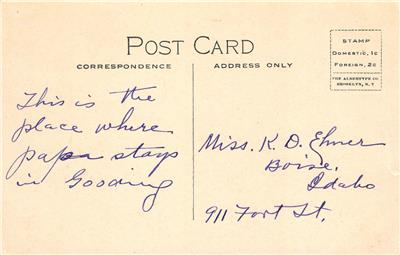 POST CARD
CORRESPONDENCE
ADDRESS ONLY
STAMP
DOMESTIC, 1c
FOREIGN, 2c
THE ALBERTYPE CO.
BROOKLYN, N.Y.
This is the
place where
papa stays
in Gooding
Miss. K. D. Ehner
Boise,
Idaho
911 Fort St.